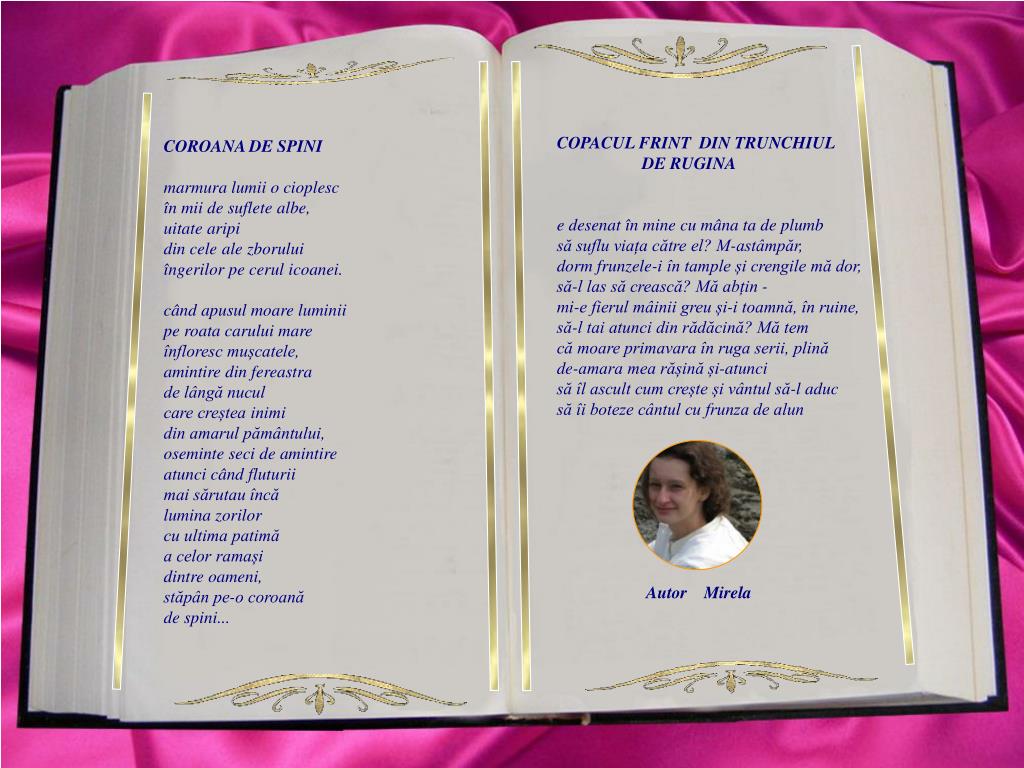 COROANA DE SPINI
marmura lumii o cioplesc
în mii de suflete albe,
uitate aripi
din cele ale zborului
îngerilor pe cerul icoanei.
când apusul moare luminii
pe roata carului mare
înfloresc mușcatele,
amintire din fereastra
de lângă nucul
care creștea inimi
din amarul pământului,
oseminte seci de amintire
atunci când fluturii
mai sărutau încă
lumina zorilor
cu ultima patimă
a celor ramași
dintre oameni,
stăpân pe-o coroană
de spini...
COPACUL FRINT DIN TRUNCHIUL
DE RUGINA
e desenat în mine cu mâna ta de plumb
să suflu viața către el? M-astâmpăr,
dorm frunzele-i în tample și crengile mă dor,
să-l las să crească? Mă abțin -
mi-e fierul mâinii greu și-i toamnă, în ruine,
să-l tai atunci din rădăcină? Mă tem
că moare primavara în ruga serii, plină
de-amara mea rășină și-atunci
să îl ascult cum crește și vântul să-l aduc
să îi boteze cântul cu frunza de alun
Autor Mirela